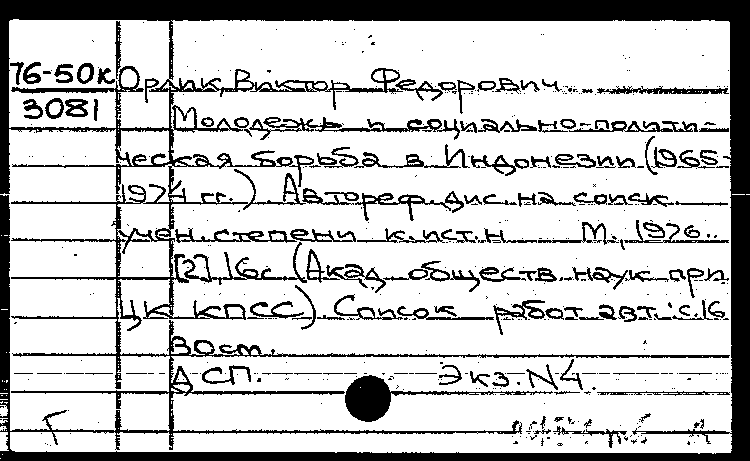 76-50к Орлик, Виктор Федорович
3081 Молодежь и социально-полити-
ческая борьба в Индонезии (1965-
1974 гг.). Автореф. дис. на соиск.
учен. степени к. ист. н М., 1976.
[2], 16с. (Акад. обществ. наук при
ЦК КПСС). Список работ авт.: с. 16
30 ст.
ДСП. Экз. N4.
Г